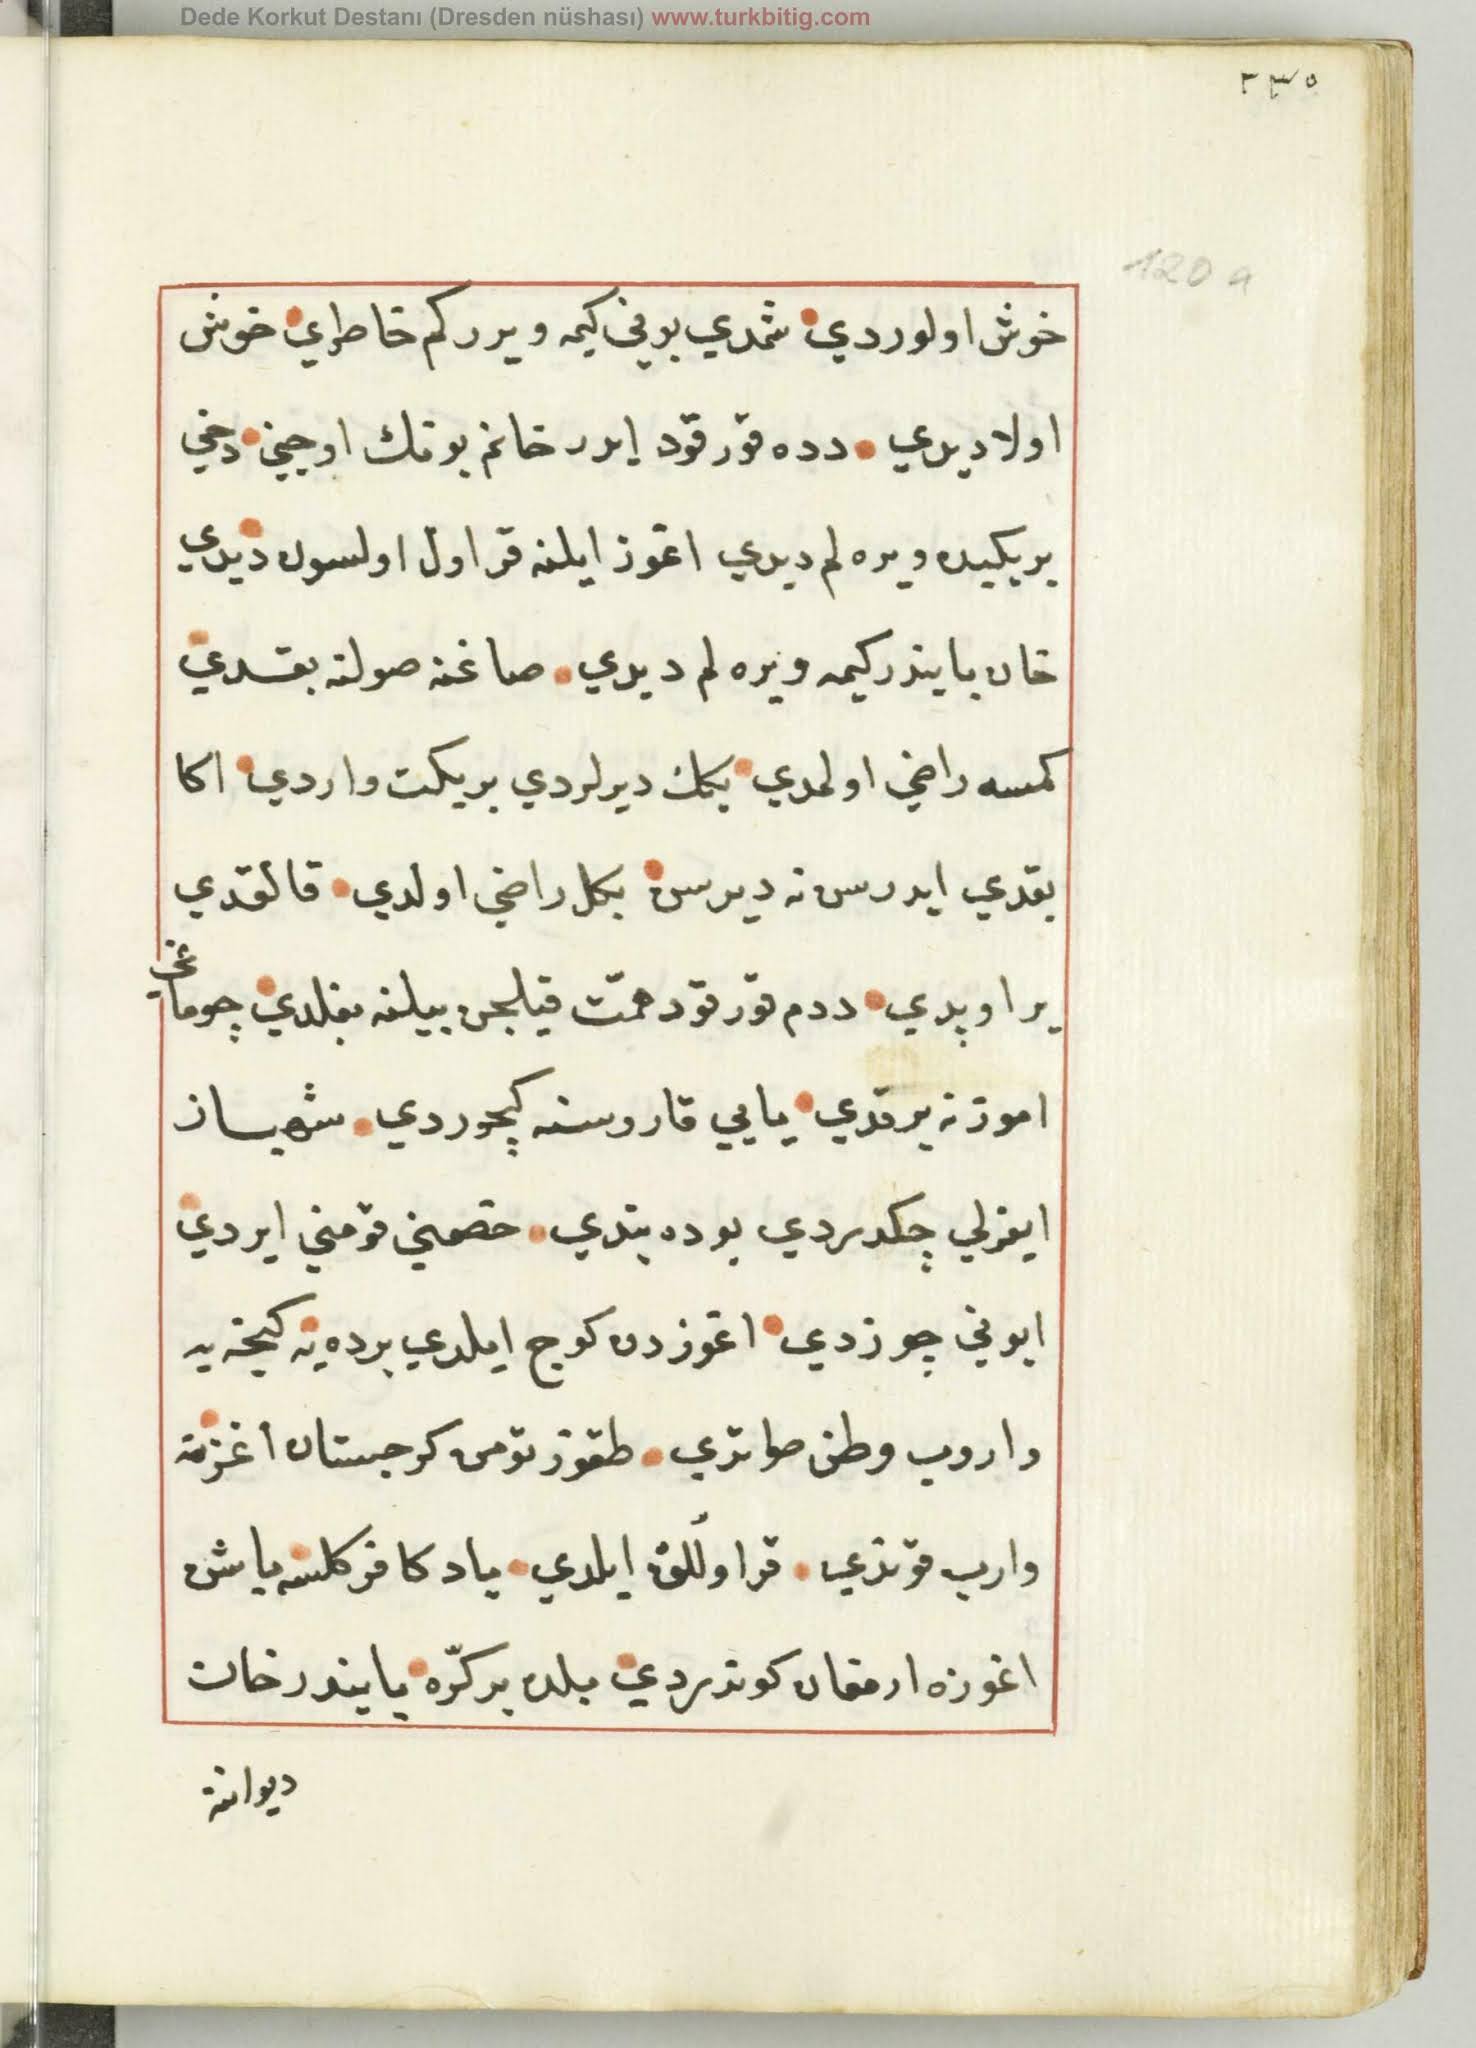 Dede Korkut Destanı (Dresden nüshası) www.turkbitig.com
٢٣٥
120 a
خوش اولوردي شمدي بوني كيمه ويرركم خاطري خوش
اولا ديدي دده قورقود ايدر خانم بونك اوچيني دخي
بريكيده ويره لم ديدي اغوز ايلنه قراول اولسون ديدي
خان بايندر كيمه ويره لم ديدي صاغنه صولنه بقدي
كمسه راضي اولمدي بكل ديرلردي بريكت واردي اكا
بقدي ايدر سن نه ديرسن بكل راضي اولدي قالقدي
ير اوپدي ددم قورقود همّت قيلجن بيلنه بغلدي چوماغي
اموزنه برقدي يايي قاروسنه كچوردي شهباز
ايغرلي چكدردي بوده بندي حصمني قومني ايردي
ايوني چوزدي اغوزدن كوچ ايلدي برده يه كنجه يه
واروب وطن طوتدي طقوز تومن كرجستان اغزينه
وارب قوندي قراوللق ايلدي ياد كافر كلسه باشن
اغوزه ارمغان كوندردي يلده بركرّه بايندر خان
ديواننه